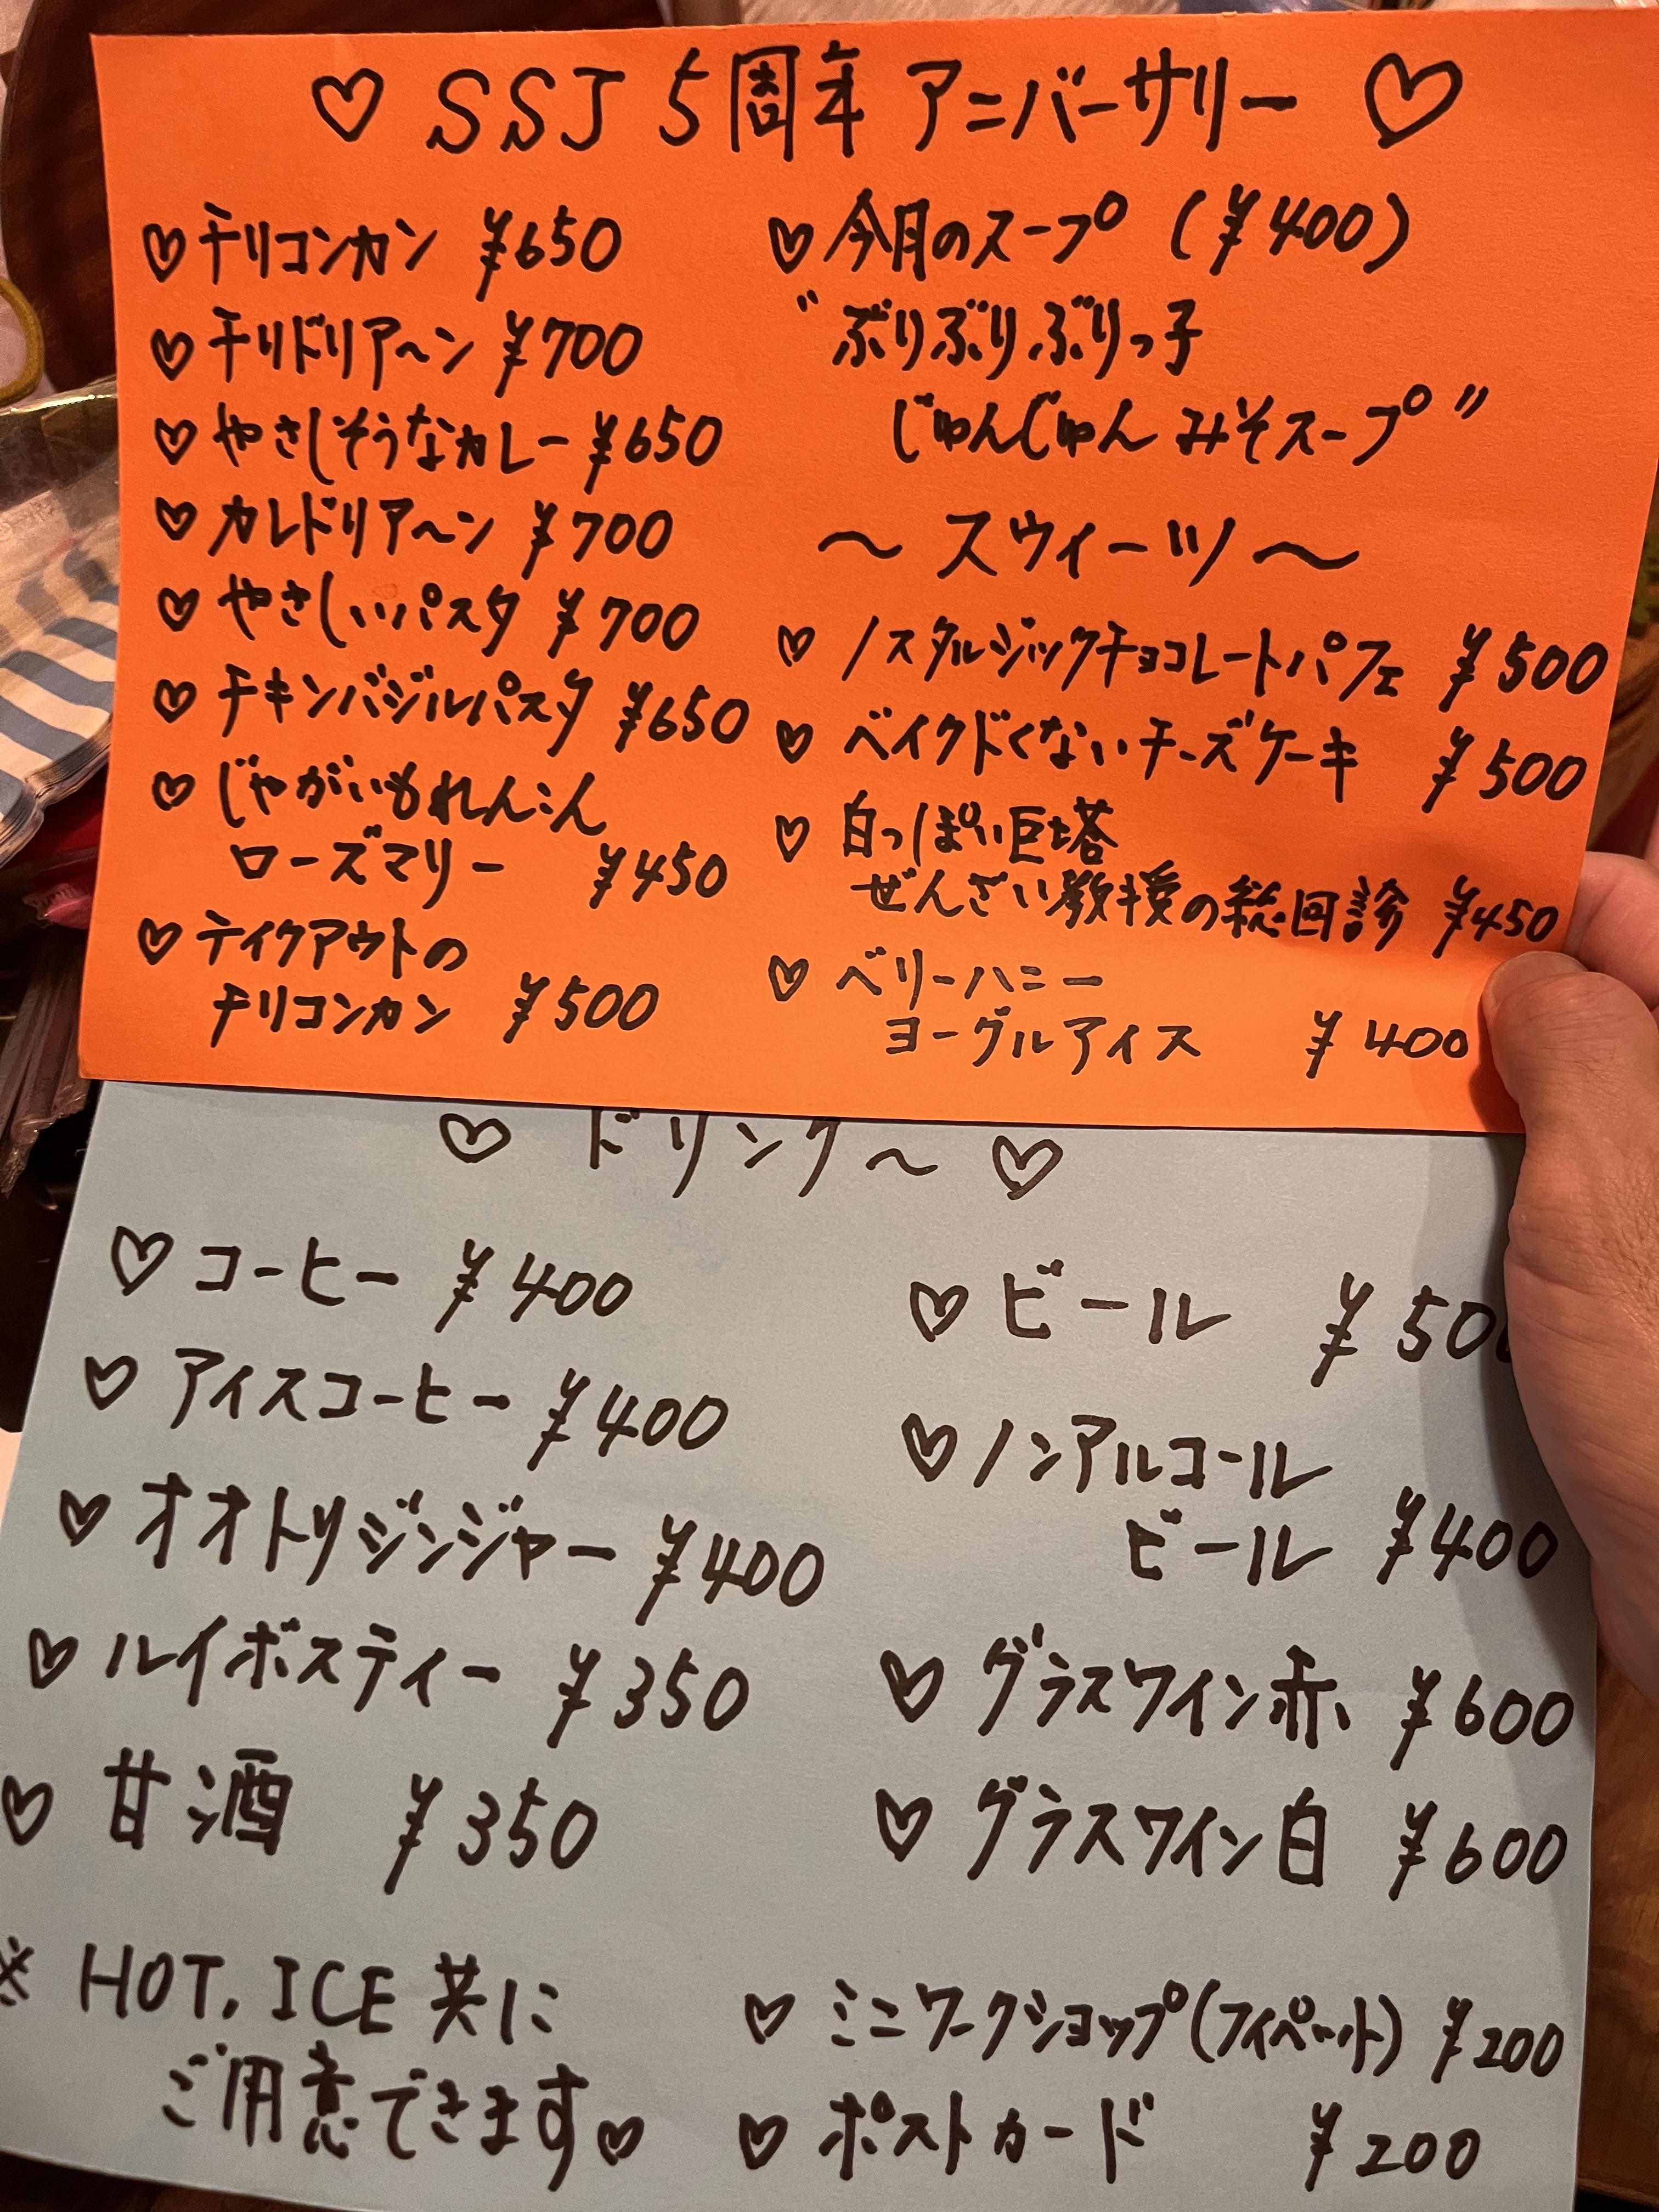 ♡ SSJ 5周年 アニバーサリー ♡
♡ チリコンカン ¥650
♡ チリドリア〜ン ¥700
♡ やさしそうなカレー ¥650
♡ カレドリア〜ン ¥700
♡ やさしいパスタ ¥700
♡ チキンバジルパスタ ¥650
♡ じゃがいもれんこん
ローズマリー ¥450
♡ テイクアウトの
チリコンカン ¥500
♡ 今月のスープ (¥400)
"ぶりぶりぶりっ子
じゅんじゅんみそスープ"
〜スウィーツ〜
♡ ノスタルジックチョコレートパフェ ¥500
♡ ベイクドくないチーズケーキ ¥500
♡ 白っぽい巨塔
ぜんざい教授の総回診 ¥450
♡ ベリーハニー
ヨーグルアイス ¥400
♡ ドリンク〜 ♡
♡ コーヒー ¥400
♡ アイスコーヒー ¥400
♡ オオトリジンジャー ¥400
♡ ルイボスティー ¥350
♡ 甘酒 ¥350
※ HOT, ICE 共に
ご用意できます♡
♡ ビール ¥500
♡ ノンアルコール
ビール ¥400
♡ グラスワイン赤 ¥600
♡ グラスワイン白 ¥600
♡ ミニワークショップ(フィペット) ¥200
♡ ポストカード ¥200